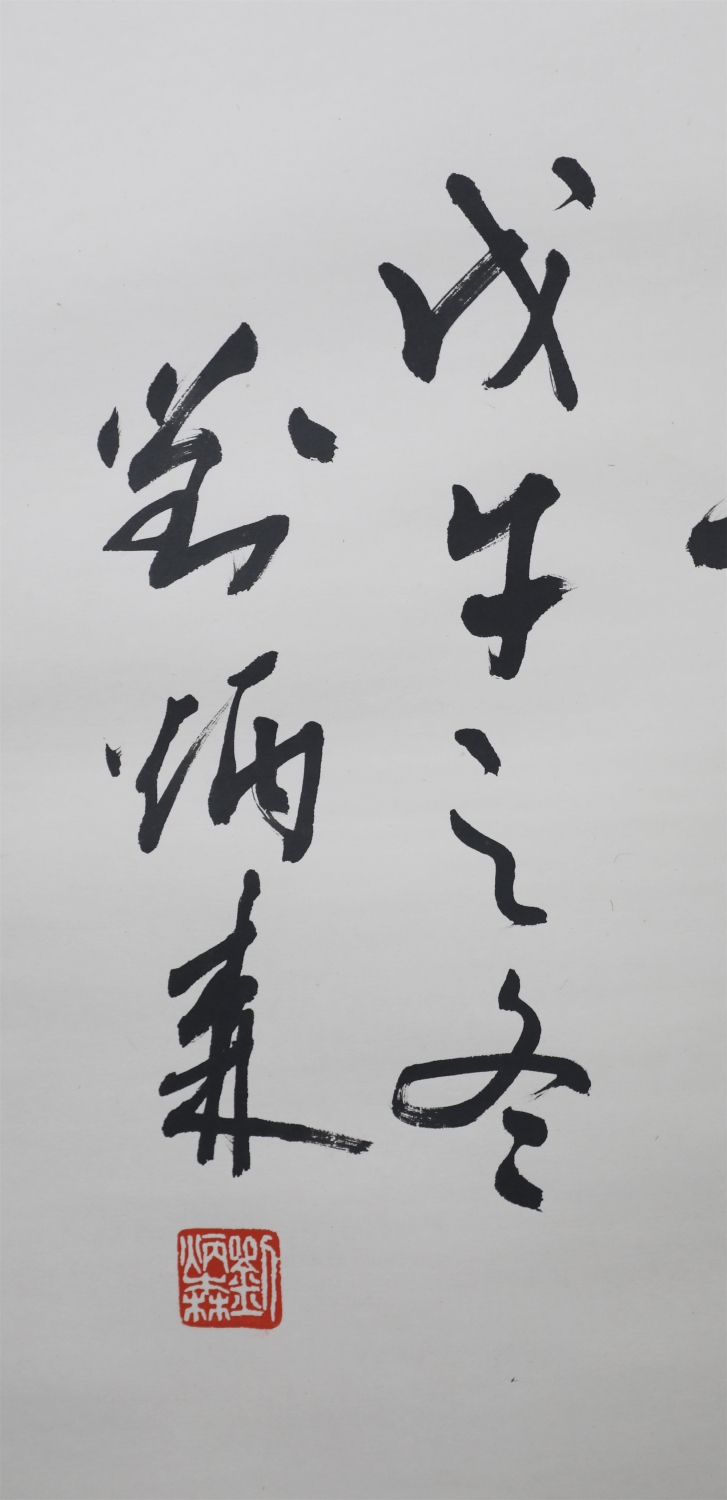 戊午之冬
劉炳森
劉炳森